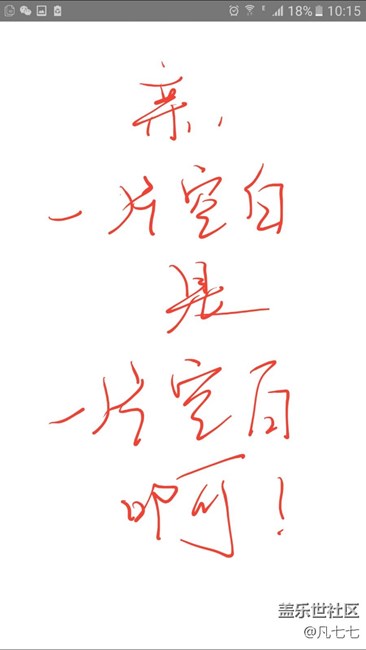 18% 10:15
亲,
一片空白
是
一片空白
啊!
盖乐世社区
@凡七七